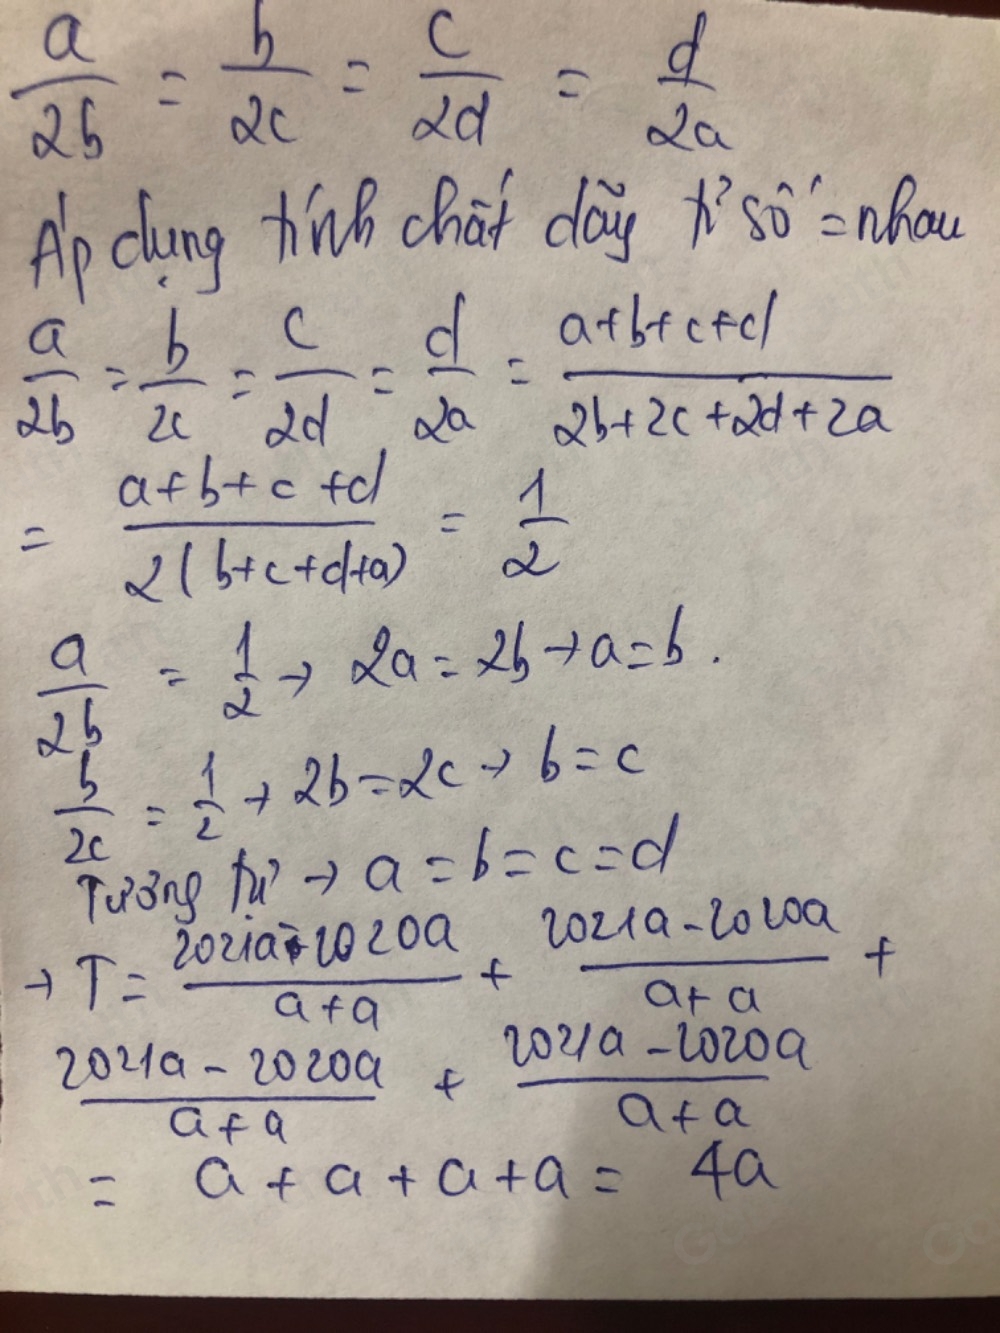 a/2b = b/2c = c/2d = d/2a
Áp dụng tính chất dãy tỉ số = nhau
a/2b = b/2c = c/2d = d/2a = a+b+c+d/2b+2c+2d+2a
= a+b+c+d/2(b+c+d+a) = 1/2
a/2b = 1/2 → 2a = 2b → a = b.
b/2c = 1/2 → 2b = 2c → b = c
Tương tự → a = b = c = d
→ T = 2021a-2020a/a+a + 2021a-2020a/a+a +
2021a-2020a/a+a + 2021a-2020a/a+a
= a + a + a + a = 4a